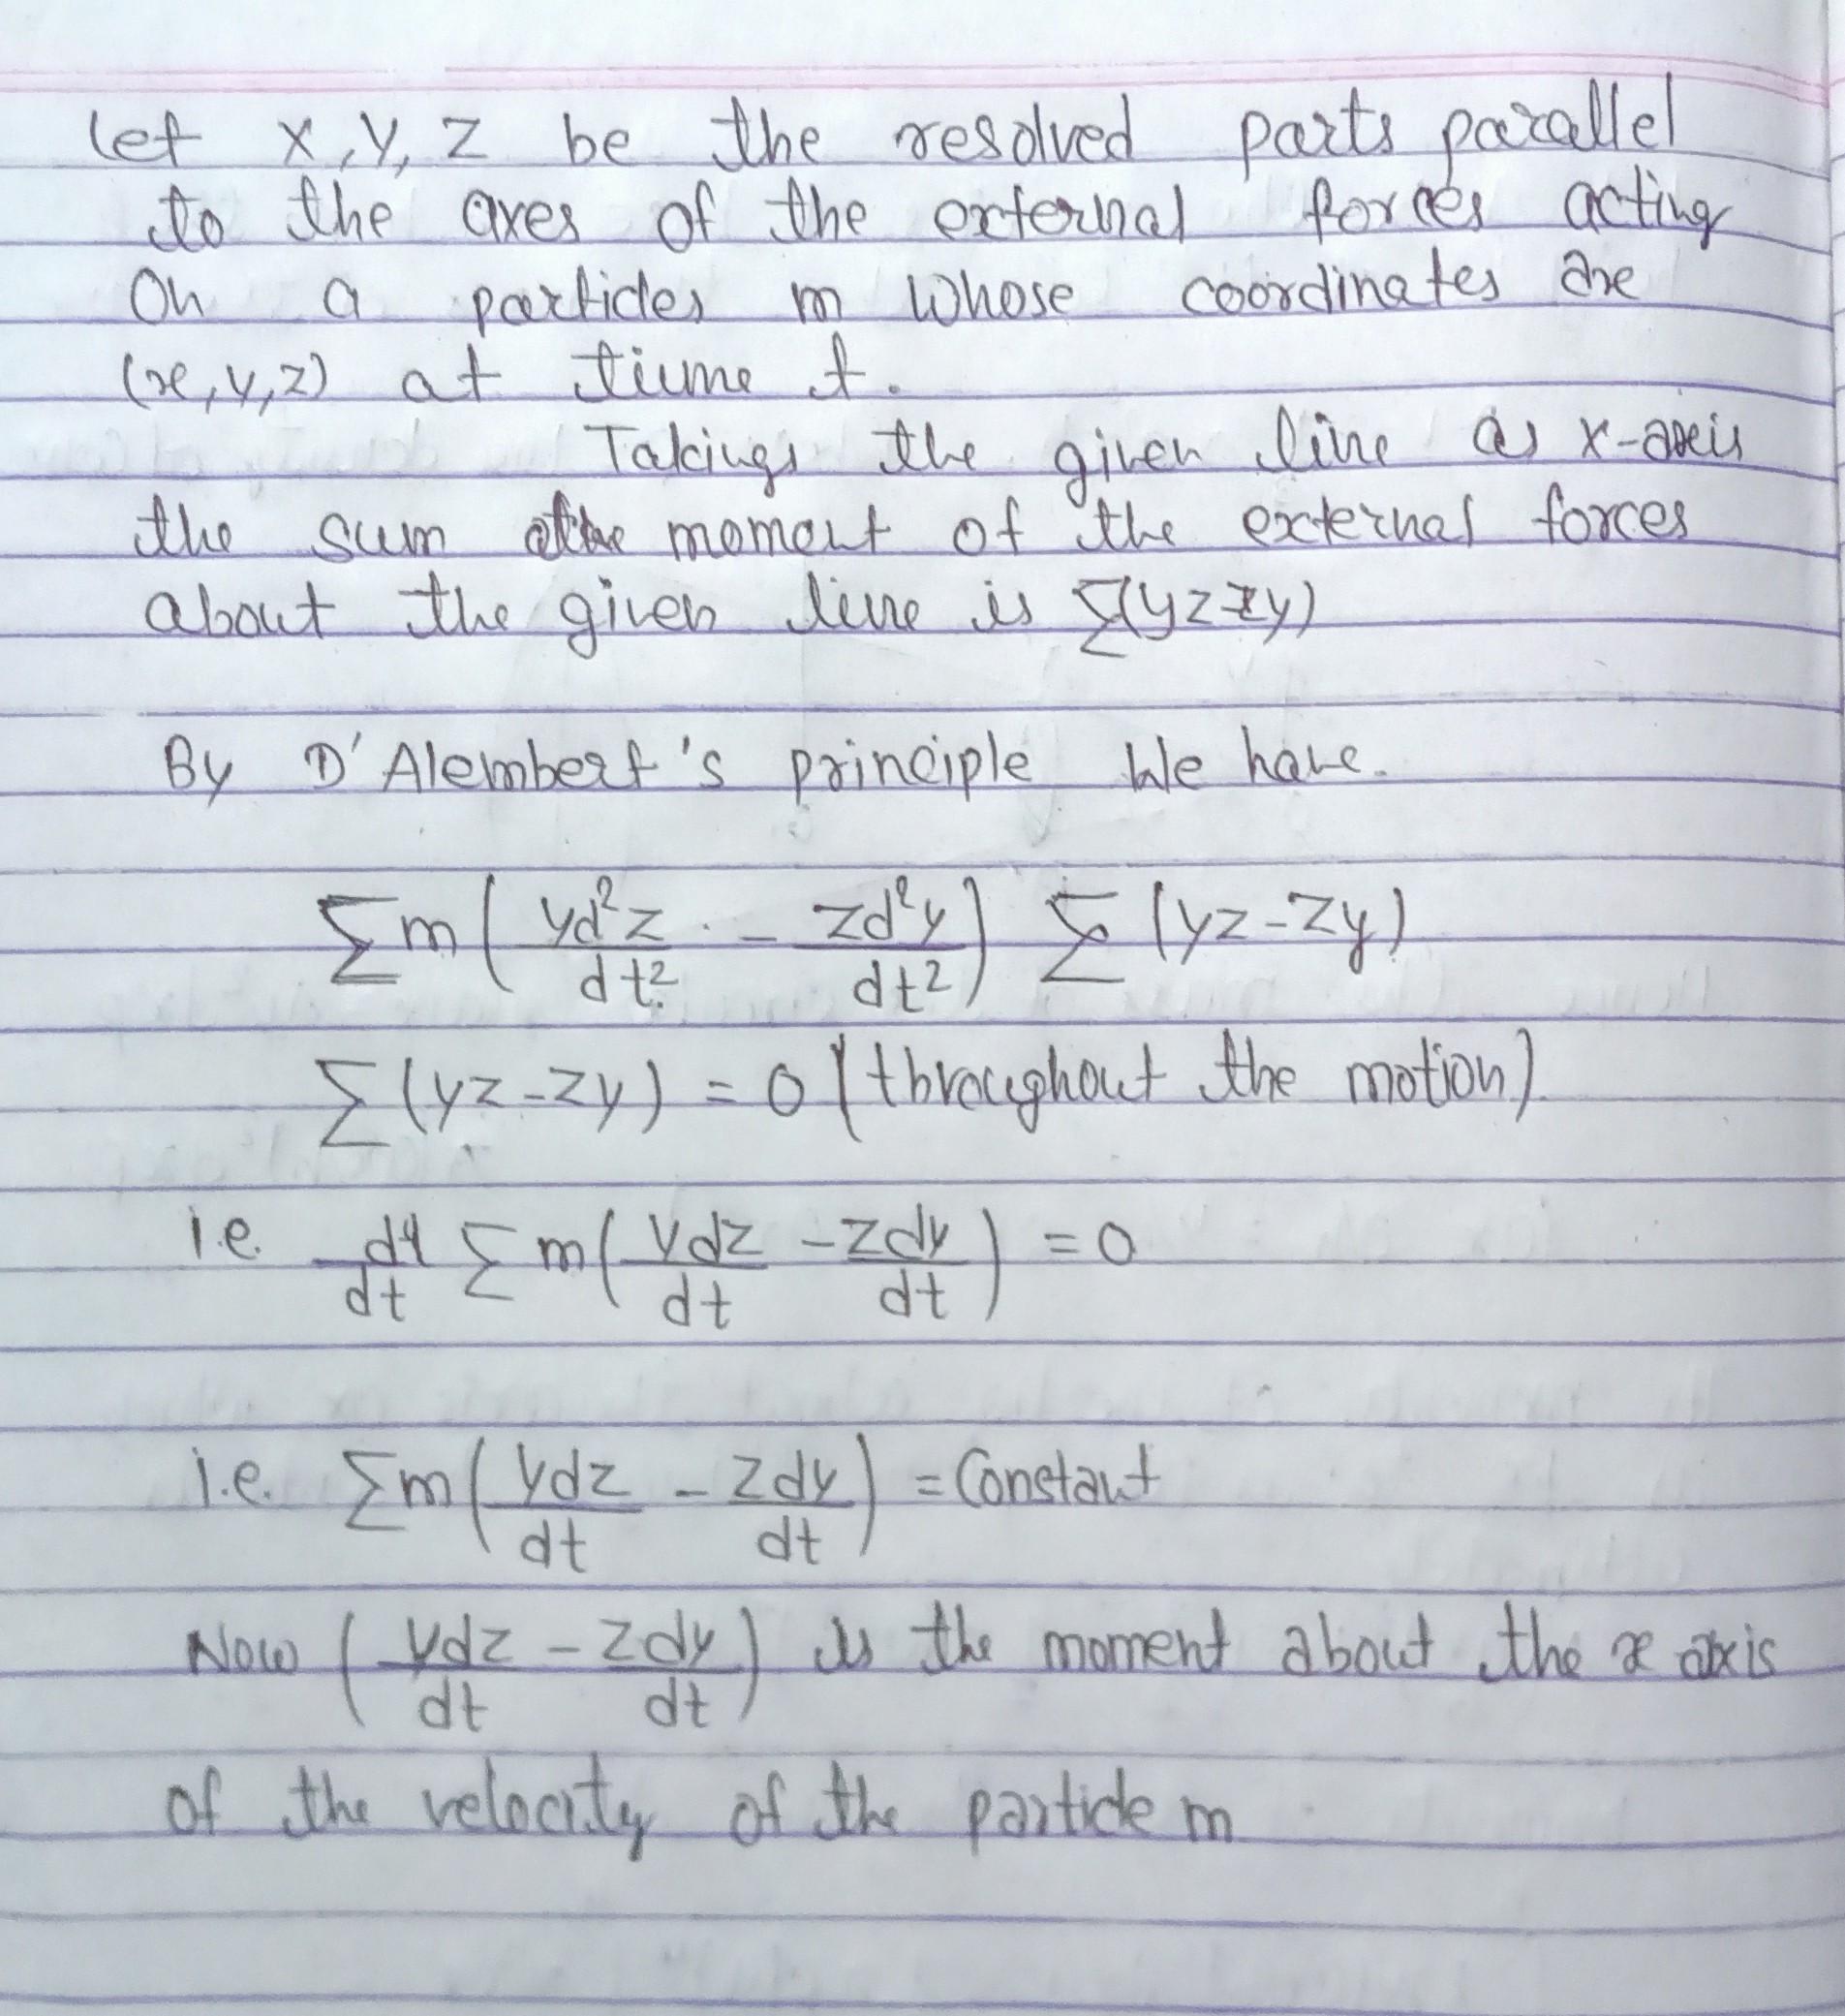 Let X, Y, Z be the resolved parts parallel
to the axes of the external forces acting
On a particles m whose coordinates are
(x, y, z) at tiume t.
Takings the given line as x-axis
the sum of the moment of the external forces
about the given line is ∑(yz-zy)
By D'Alembert's principle We have.
∑m(yd²z/dt² - zd²y/dt²) ∑(yz-zy)
∑(yz-zy) = 0 (throughout the motion)
i.e. d/dt ∑m(ydz/dt - zdy/dt) = 0
i.e. ∑m(ydz/dt - zdy/dt) = Constant
Now (ydz/dt - zdy/dt) is the moment about the x axis
of the velocity of the particle m